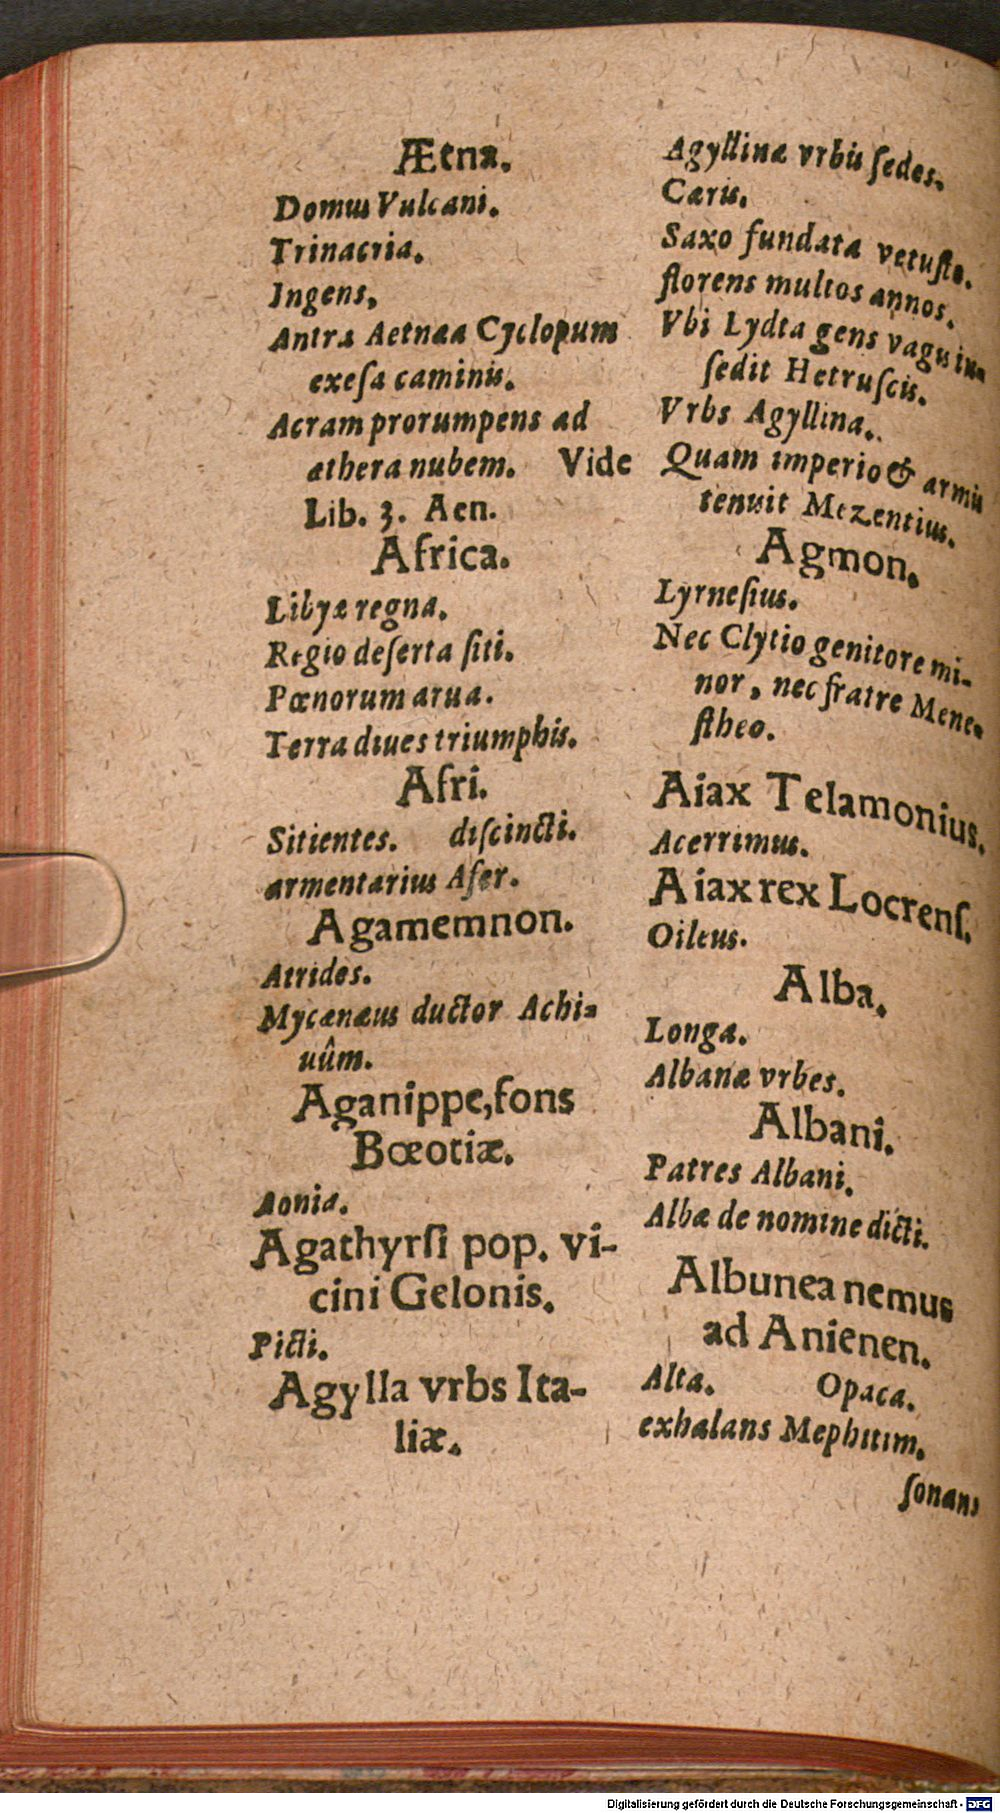 Ætna.
Domus Vulcani.
Trinacria.
Ingens,
Antra Aetnæa Cyclopum
exeſa caminis.
Acram prorumpens ad
æthera nubem. Vide
Lib. 3. Aen.
Africa.
Libyæ regna.
Regio deſerta ſiti.
Pœnorum arua.
Terra diues triumphis.
Afri.
Sitientes. diſcincti.
armentarius Afer.
Agamemnon.
Atrides.
Mycænæus ductor Achi-
uûm.
Aganippe, fons
Bœotiæ.
Aonia.
Agathyrſi pop. vi-
cini Gelonis.
Picti.
Agylla vrbs Ita-
liæ.
Agyllinæ vrbis ſedes.
Cæris.
Saxo fundata vetuſto.
florens multos annos.
Vbi Lydia gens vaguin-
ſedit Hetruſcis.
Vrbs Agyllina.
Quam imperio & armis
tenuit Mezentius.
Agmon.
Lyrneſius.
Nec Clytio genitore mi-
nor, nec fratre Mene-
ſtheo.
Aiax Telamonius.
Acerrimus.
Aiax rex Locrenſ.
Oileus.
Alba.
Longa.
Albanæ vrbes.
Albani.
Patres Albani.
Albæ de nomine dicti.
Albunea nemus
ad Anienen.
Alta. Opaca.
exhalans Mephitim.
ſonans
Digitalisierung gefördert durch die Deutsche Forschungsgemeinschaft - DFG